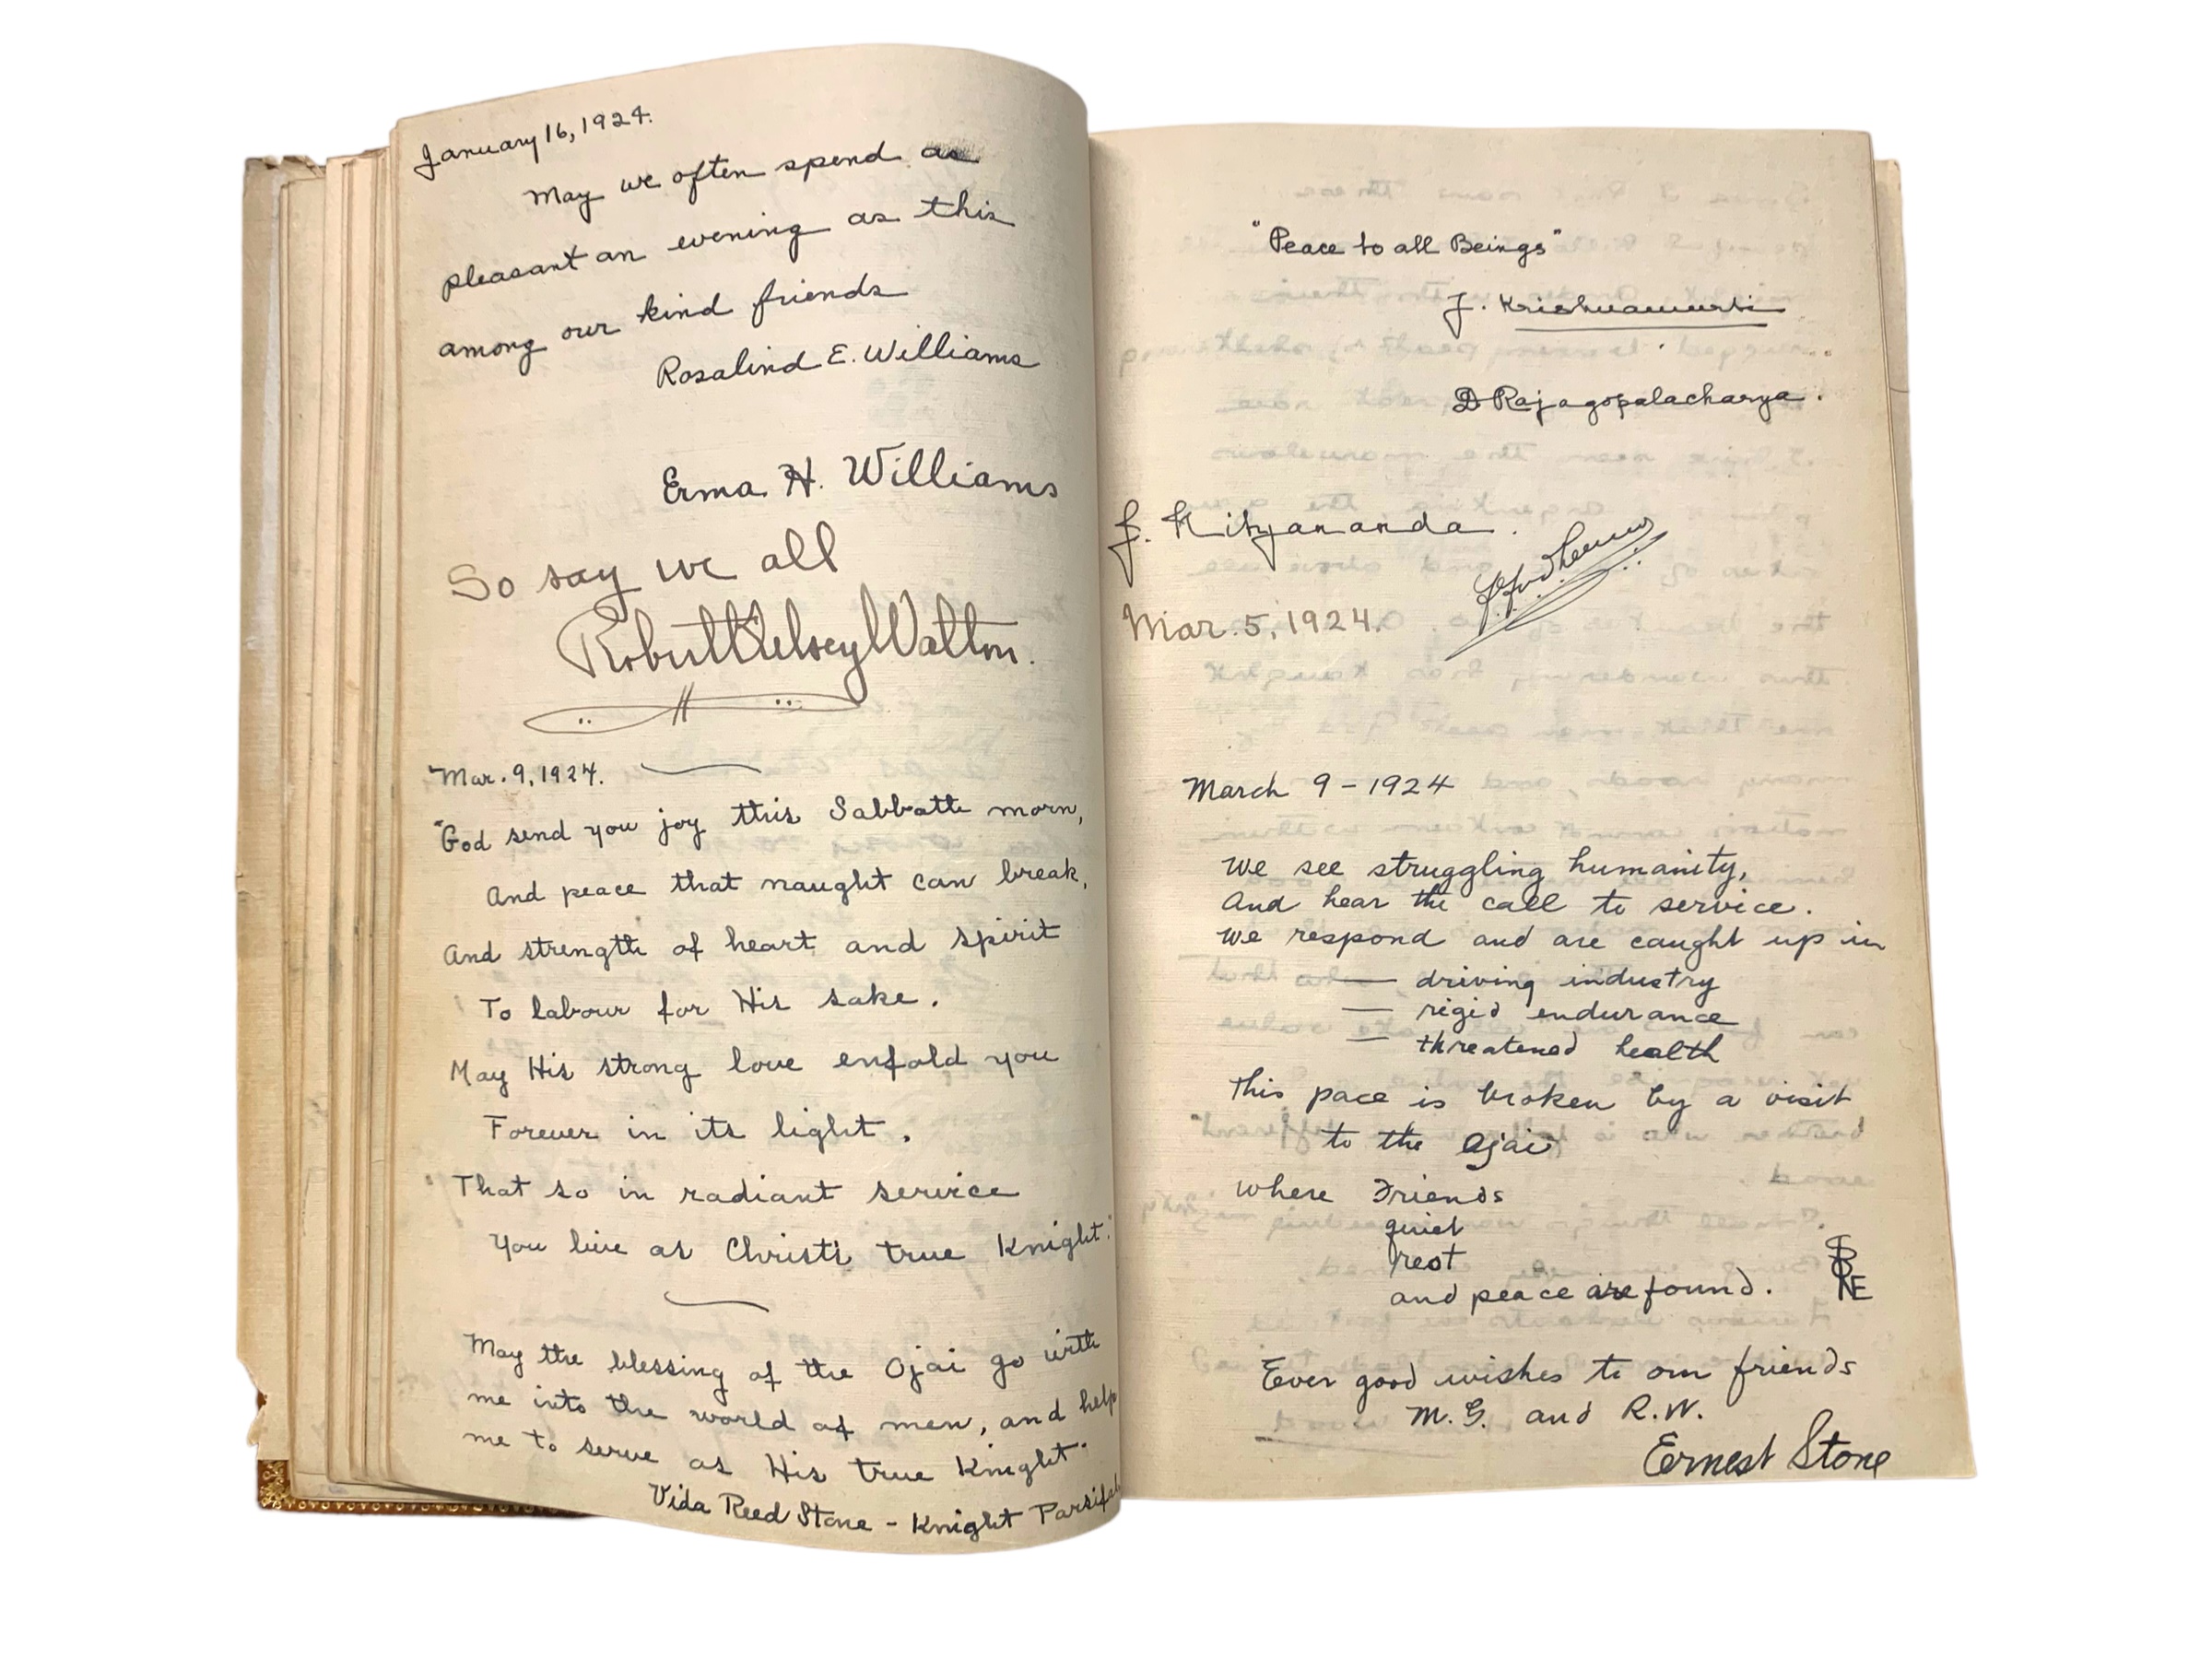 January 16, 1924.
May we often spend as
pleasant an evening as this
among our kind friends
Rosalind E. Williams
Erma H. Williams
So say we all
Robert Kelsey Walton.
"Mar. 9, 1924.
"God send you joy this Sabbath morn,
And peace that naught can break,
And strength of heart and spirit
To labour for His sake.
May His strong love enfold you
Forever in its light.
"That so in radiant service
You live as Christ's true Knight."
May the blessing of the Ojai go with
me into the world of men, and help
me to serve as His true Knight"
Vida Reed Stone - Knight Parsifal
"Peace to all Beings"
J. Krishnamurti
D Rajagopalacharya.
J. Nityananda.
Mar. 5, 1924.
March 9 - 1924
We see struggling humanity,
And hear the call to service.
We respond and are caught up in
— driving industry
— rigid endurance
— threatened health
This pace is broken by a visit
to the Ojai
where Friends
quiet
rest
and peace are found.
Ever good wishes to our friends
M. G. and R. W.
Ernest Stone